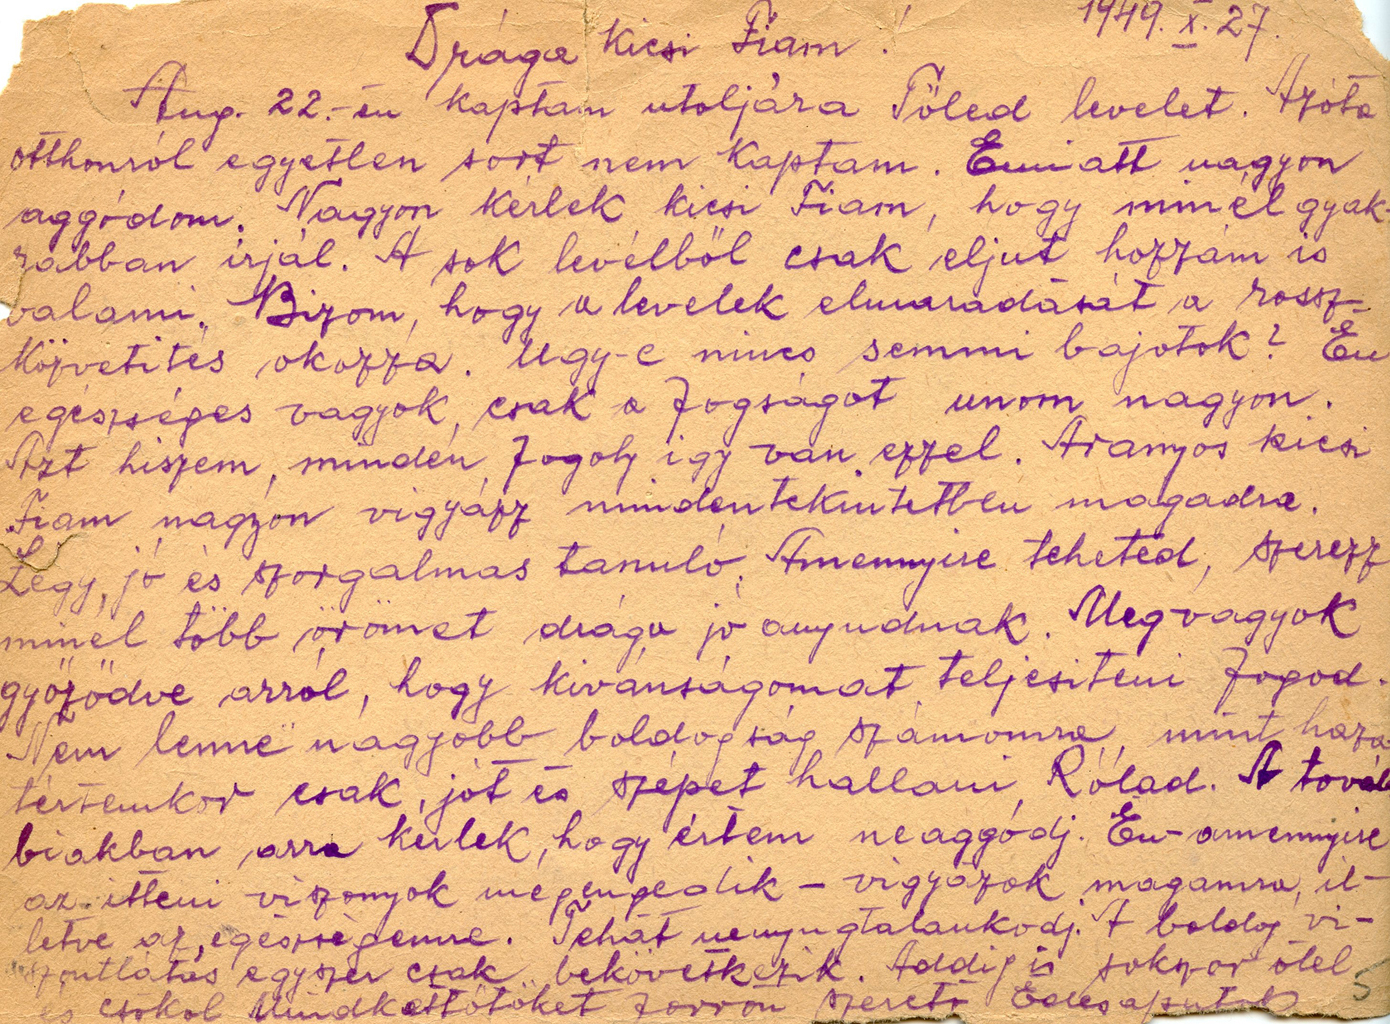 1949. X. 27.
Drága kicsi Fiam!
Aug. 22.-én kaptam utoljára Tőled levelet. Azóta
otthonról egyetlen sort nem kaptam. Emiatt nagyon
aggódom. Nagyon kérlek kicsi Fiam, hogy minél gyak-
rabban írjál. A sok levélből csak eljut hozzám is
valami. Bizom, hogy a levelek elmaradását a rossz-
közvetítés okozza. Ugy-e nincs semmi bajotok? Én
egészséges vagyok, csak a fogságot unom nagyon.
Azt hiszem, minden fogoly így van ezzel. Aranyos kicsi
Fiam nagyon vigyázz mindentekintetben magadra.
Légy jó és szorgalmas tanuló. Amennyire teheted, szerezz
minél több örömet drága jó anyudnak. Megvagyok
győződve arról, hogy kivánságomat teljesíteni fogod.
Nem lenne nagyobb boldogság számomra mint haza
tértemkor csak jót és szépet hallani Rólad. A továb
biakban arra kérlek, hogy értem neaggódj. Én - amennyire
az itteni viszonyok megengedik - vigyázok magamra, il-
letve az egészségemre. Tehát nenyugtalankodj. A boldog vi-
szontlátás egyszer csak bekövetkezik. Addig is sokszor ölel
és csókol Mindkettőtöket forrón szerető Édesapátok
5